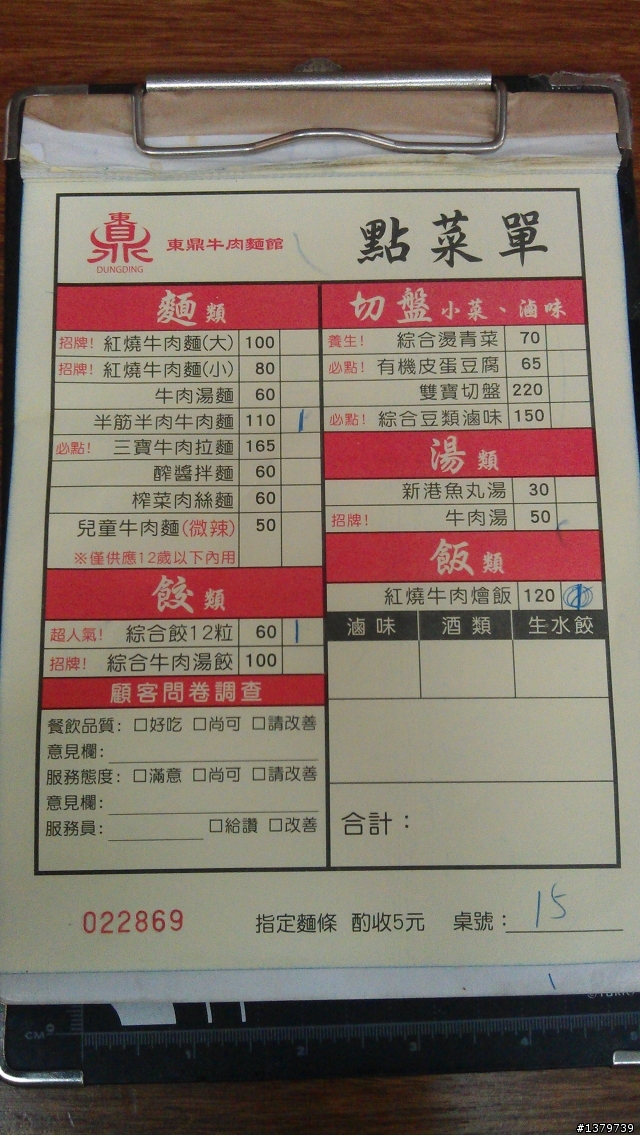 東鼎
DUNGDING
東鼎牛肉麵館
點菜單
麵類
招牌! 紅燒牛肉麵(大) 100
招牌! 紅燒牛肉麵(小) 80
牛肉湯麵 60
半筋半肉牛肉麵 110 1
必點! 三寶牛肉拉麵 165
醡醬拌麵 60
榨菜肉絲麵 60
兒童牛肉麵(微辣) 50
※僅供應12歲以下內用
餃類
超人氣! 綜合餃12粒 60 1
招牌! 綜合牛肉湯餃 100
顧客問卷調查
餐飲品質: □好吃 □尚可 □請改善
意見欄:
服務態度: □滿意 □尚可 □請改善
意見欄:
服務員: □給讚 □改善
切盤 小菜、滷味
養生! 綜合燙青菜 70
必點! 有機皮蛋豆腐 65
雙寶切盤 220
必點! 綜合豆類滷味 150
湯類
新港魚丸湯 30
招牌! 牛肉湯 50
飯類
紅燒牛肉燴飯 120
滷味 酒類 生水餃
合計:
022869 指定麵條 酌收5元 桌號: 15
CM 9
1 2 3 4 5
#1379739